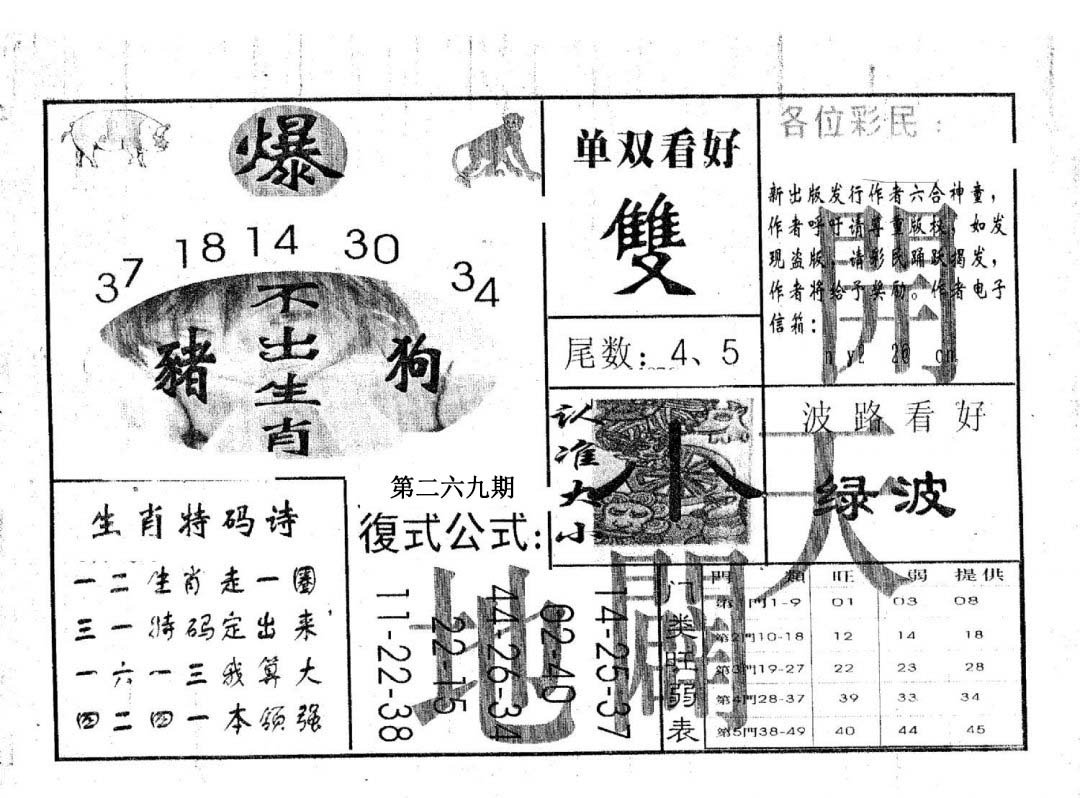 爆
37 18 14 30 34
不出生肖
豬
狗
单双看好
雙
尾数：4、5
各位彩民：
新出版发行作者六合神童，
作者呼吁请尊重版权，如发
现盗版，请彩民踊跃揭发，
作者将给予奖励。作者电子
信箱：
開
天
地
认准大小
小
波路看好
绿波
生肖特码诗
一二生肖走一圈
三一特码定出来
一六一三我算大
四二四一本领强
第二六九期
復式公式:
11-22-38
22-15
44-26-34
02-40
14-25-37
门类旺弱表
門 類 旺 弱 提供
第1門1-9 01 03 08
第2門10-18 12 14 18
第3門19-27 22 23 28
第4門28-37 39 33 34
第5門38-49 40 44 45